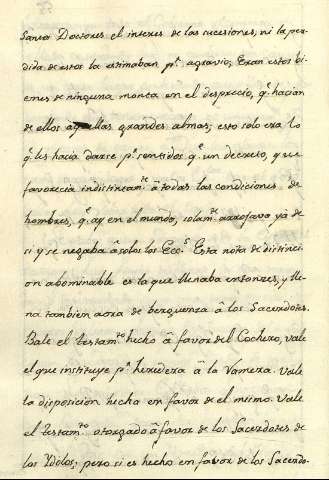 Santos Doctores el interes de las sucesiones, ni la per-
dida de estos la estimaban p.r agravio; Eran estos bi-
enes de ninguna monta en el desprecio, q.e hacian
de ellos aquellas grandes almas; esto solo era lo
q.e les hacia darse p.r sentidos q.e un decreto, q.e
favorecia indistintam.te â todas las condiciones de
hombres, q.e ay en el mundo, solam.te arrojava yà de
sî y se negaba â solos los Ecc.s Esta nota de distinci-
on abominable es la que llenaba entonzes, y lle-
na tambien aora de berguenza â los Sacerdotes.
Bale el testam.to hecho â favor del Cochero, vale
el que instituye p.r heredera â la Ramera. Vale
la disposicion hecha en favor de el mimo. Vale
el testam.to otorgado â favor de los Sacerdotes de
los Ydolos; pero si es hecho en favor de los Sacerdo-